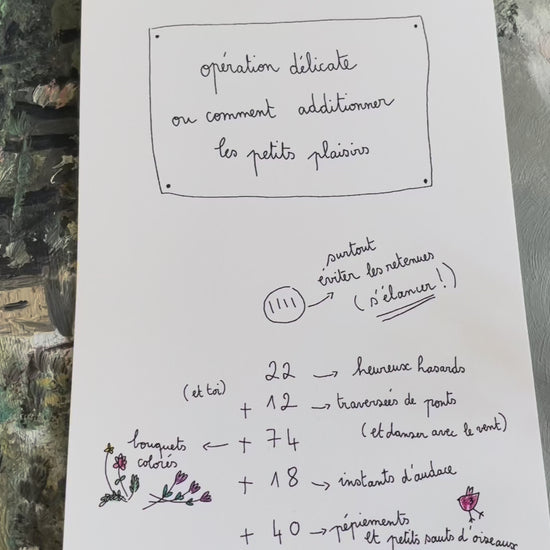 opération délicate
ou comment additionner
les petits plaisirs
surtout
éviter les retenues
(s'élancer !)
22 → heureux hasards
(et toi)
+ 12 → traversées de ponts
(et danser avec le vent)
bouquets colorés ← + 74
+ 18 → instants d'audace
+ 40 → pépiements
et petits sauts d'oiseaux